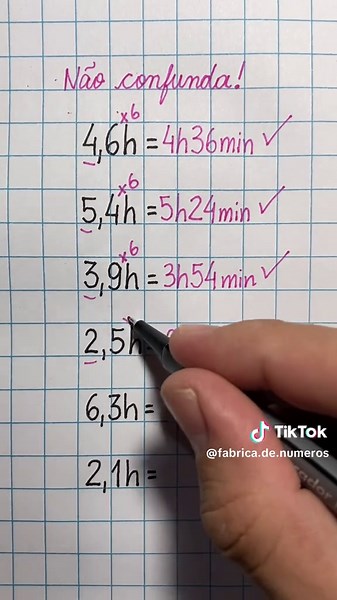 Não confunda!
x6
4,6h = 4h36min ✓
x6
5,4h = 5h24min ✓
x6
3,9h = 3h54min ✓
2,5h =
6,3h =
2,1h =
TikTok
@fabrica.de.numeros